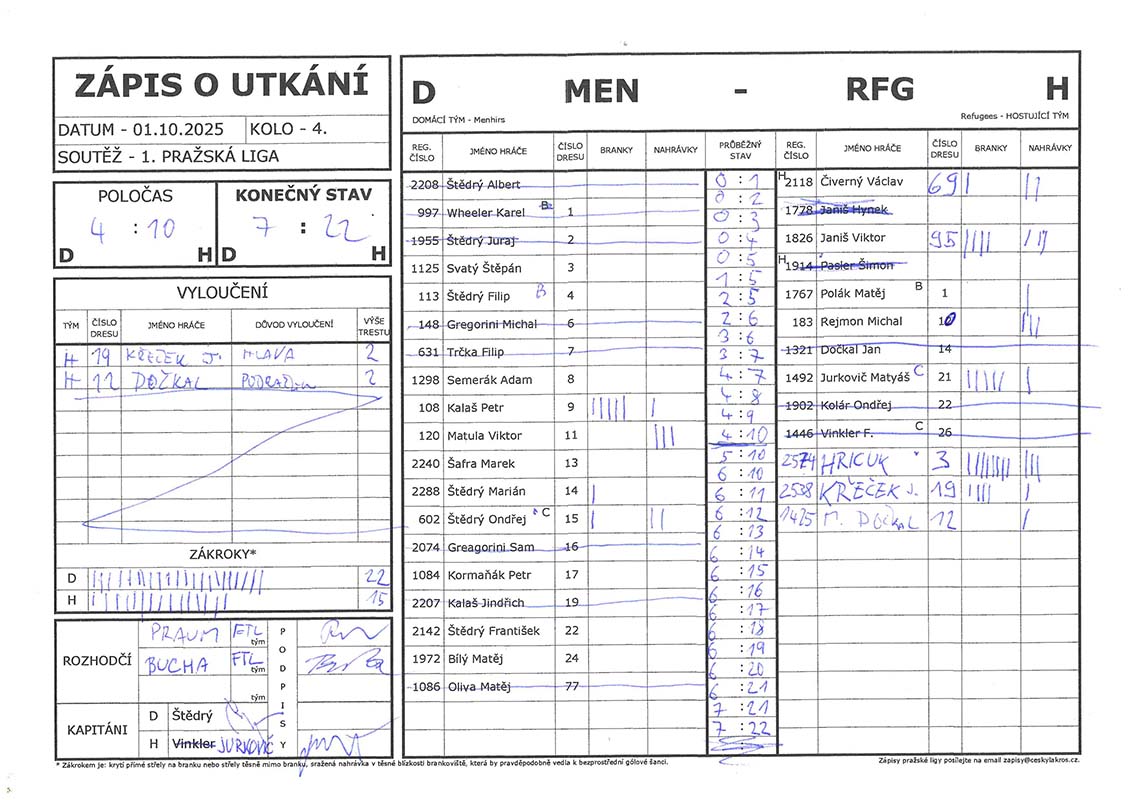 ZÁPIS O UTKÁNÍ
DATUM - 01.10.2025 KOLO - 4.
SOUTĚŽ - 1. PRAŽSKÁ LIGA
POLOČAS KONEČNÝ STAV
4 : 10 7 : 22
D H D H
VYLOUČENÍ
TÝM ČÍSLO DRESU JMÉNO HRÁČE DŮVOD VYLOUČENÍ VÝŠE TRESTU
H 19 KŘEČEK J. HLAVA 2
H 12 DOČKAL 2
ZÁKROKY*
D 22
H 15
ROZHODČÍ PRAUM FTL tým
BUCHA FTL tým
tým
PODPISY
KAPITÁNI D Štědrý
H Vinkler JURKOVIČ
D MEN - RFG H
DOMÁCÍ TÝM - Menhirs Refugees - HOSTUJÍCÍ TÝM
REG. ČÍSLO JMÉNO HRÁČE ČÍSLO DRESU BRANKY NAHRÁVKY PRŮBĚŽNÝ STAV REG. ČÍSLO JMÉNO HRÁČE ČÍSLO DRESU BRANKY NAHRÁVKY
2208 Štědrý Albert
997 Wheeler Karel B 1
1955 Štědrý Juraj 2
1125 Svatý Štěpán 3
113 Štědrý Filip B 4
148 Gregorini Michal 6
631 Trčka Filip 7
1298 Semerák Adam 8
108 Kalaš Petr 9 |||||| |
120 Matula Viktor 11 |||
2240 Šafra Marek 13
2288 Štědrý Marián 14 |
602 Štědrý Ondřej C 15 | ||
2074 Greagorini Sam 16
1084 Kormaňák Petr 17
2207 Kalaš Jindřich 19
2142 Štědrý František 22
1972 Bílý Matěj 24
1086 Oliva Matěj 77
0 : 1
0 : 2
0 : 3
0 : 4
0 : 5
1 : 5
2 : 5
2 : 6
3 : 6
3 : 7
4 : 7
4 : 8
4 : 9
4 : 10
5 : 10
6 : 10
6 : 11
6 : 12
6 : 13
6 : 14
6 : 15
6 : 16
6 : 17
6 : 18
6 : 19
6 : 20
6 : 21
7 : 21
7 : 22
H 2118 Čiverný Václav 69 | ||
1778 Janiš Hynek
1826 Janiš Viktor 95 ||||
H 1914 Pasler Šimon
1767 Polák Matěj B 1 |
183 Rejmon Michal 10
1321 Dočkal Jan 14
1492 Jurkovič Matyáš C 21 ||||| |
1902 Kolár Ondřej 22
1446 Vinkler F. C 26
2574 HRICUK 3 |||
2538 KŘEČEK J. 19 |||| |
1425 M. DOČKAL 12 |
* Zákrokem je: krytí přímé střely na branku nebo střely těsně mimo branku, sražená nahrávka v těsné blízkosti brankoviště, která by pravděpodobně vedla k bezprostřední gólové šanci.
Zápisy pražské ligy posílejte na email zapisy@ceskylakros.cz.